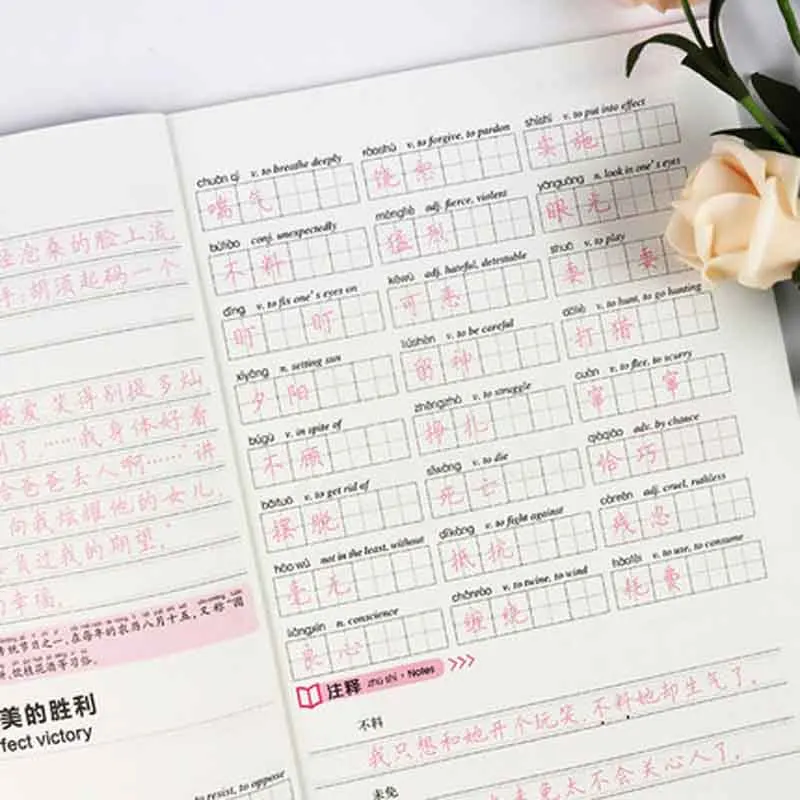 经沧桑的脸上流
胡须起码一个
爱笑得别提多灿
到了。……我身体好着
给爸爸丢人啊……“讲
向我炫耀他的女儿，
负过我的期望。”
幸福。
统节日之一，在每年的农历八月十五，又称“团
饮桂花酒等习俗。
美的胜利
fect victory
to resist, to oppose
chuǎn qì v. to breathe deeply
喘气
ráoshù v. to forgive, to pardon
饶恕
shíshī v. to put into effect
实施
búliào conj. unexpectedly
不料
měngliè adj. fierce, violent
猛烈
yǎnguāng n. look in one's eyes
眼光
dīng v. to fix one's eyes on
盯 盯
kěwù adj. hateful, detestable
可恶
shuǎ v. to play
耍 耍
xīyáng n. setting sun
夕阳
liúshén v. to be careful
留神
dǎliè v. to hunt, to go hunting
打猎
búgù v. in spite of
不顾
zhēngzhá v. to struggle
挣扎
cuàn v. to flee, to scurry
窜 窜
bǎituō v. to get rid of
摆脱
sǐwáng v. to die
死亡
qiàqiǎo adv. by chance
恰巧
háo wú not in the least, without
毫无
dǐkàng v. to fight against
抵抗
cánrěn adj. cruel, ruthless
残忍
liángxīn n. conscience
良心
chánrào v. to twine, to wind
缠绕
hàofèi v. to use, to consume
耗费
注释 zhùshì · Notes
不料
我只想和她开个玩笑，不料她却生气了。
未免
未免太不会关心人了。